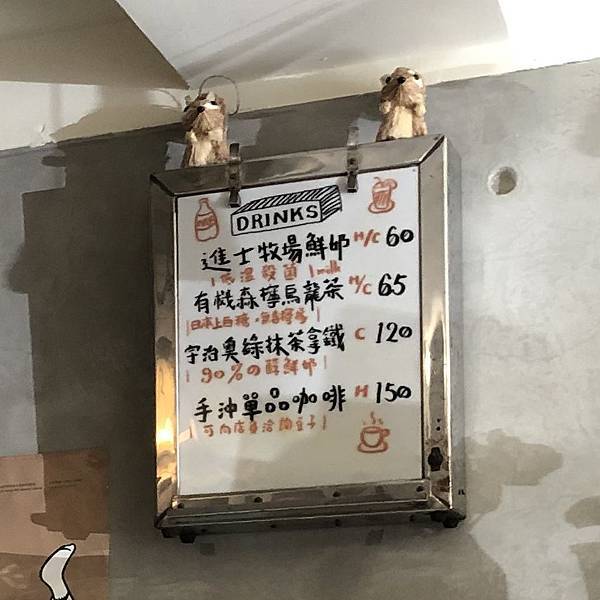 DRINKS
進士牧場鮮奶 H/C 60
低溫殺菌 milk
有機森檸烏龍茶 H/C 65
日本上白糖
宇治奧綠抹茶拿鐵 C 120
90%の鮮奶
手沖單品咖啡 H 150
可向店員洽詢豆子